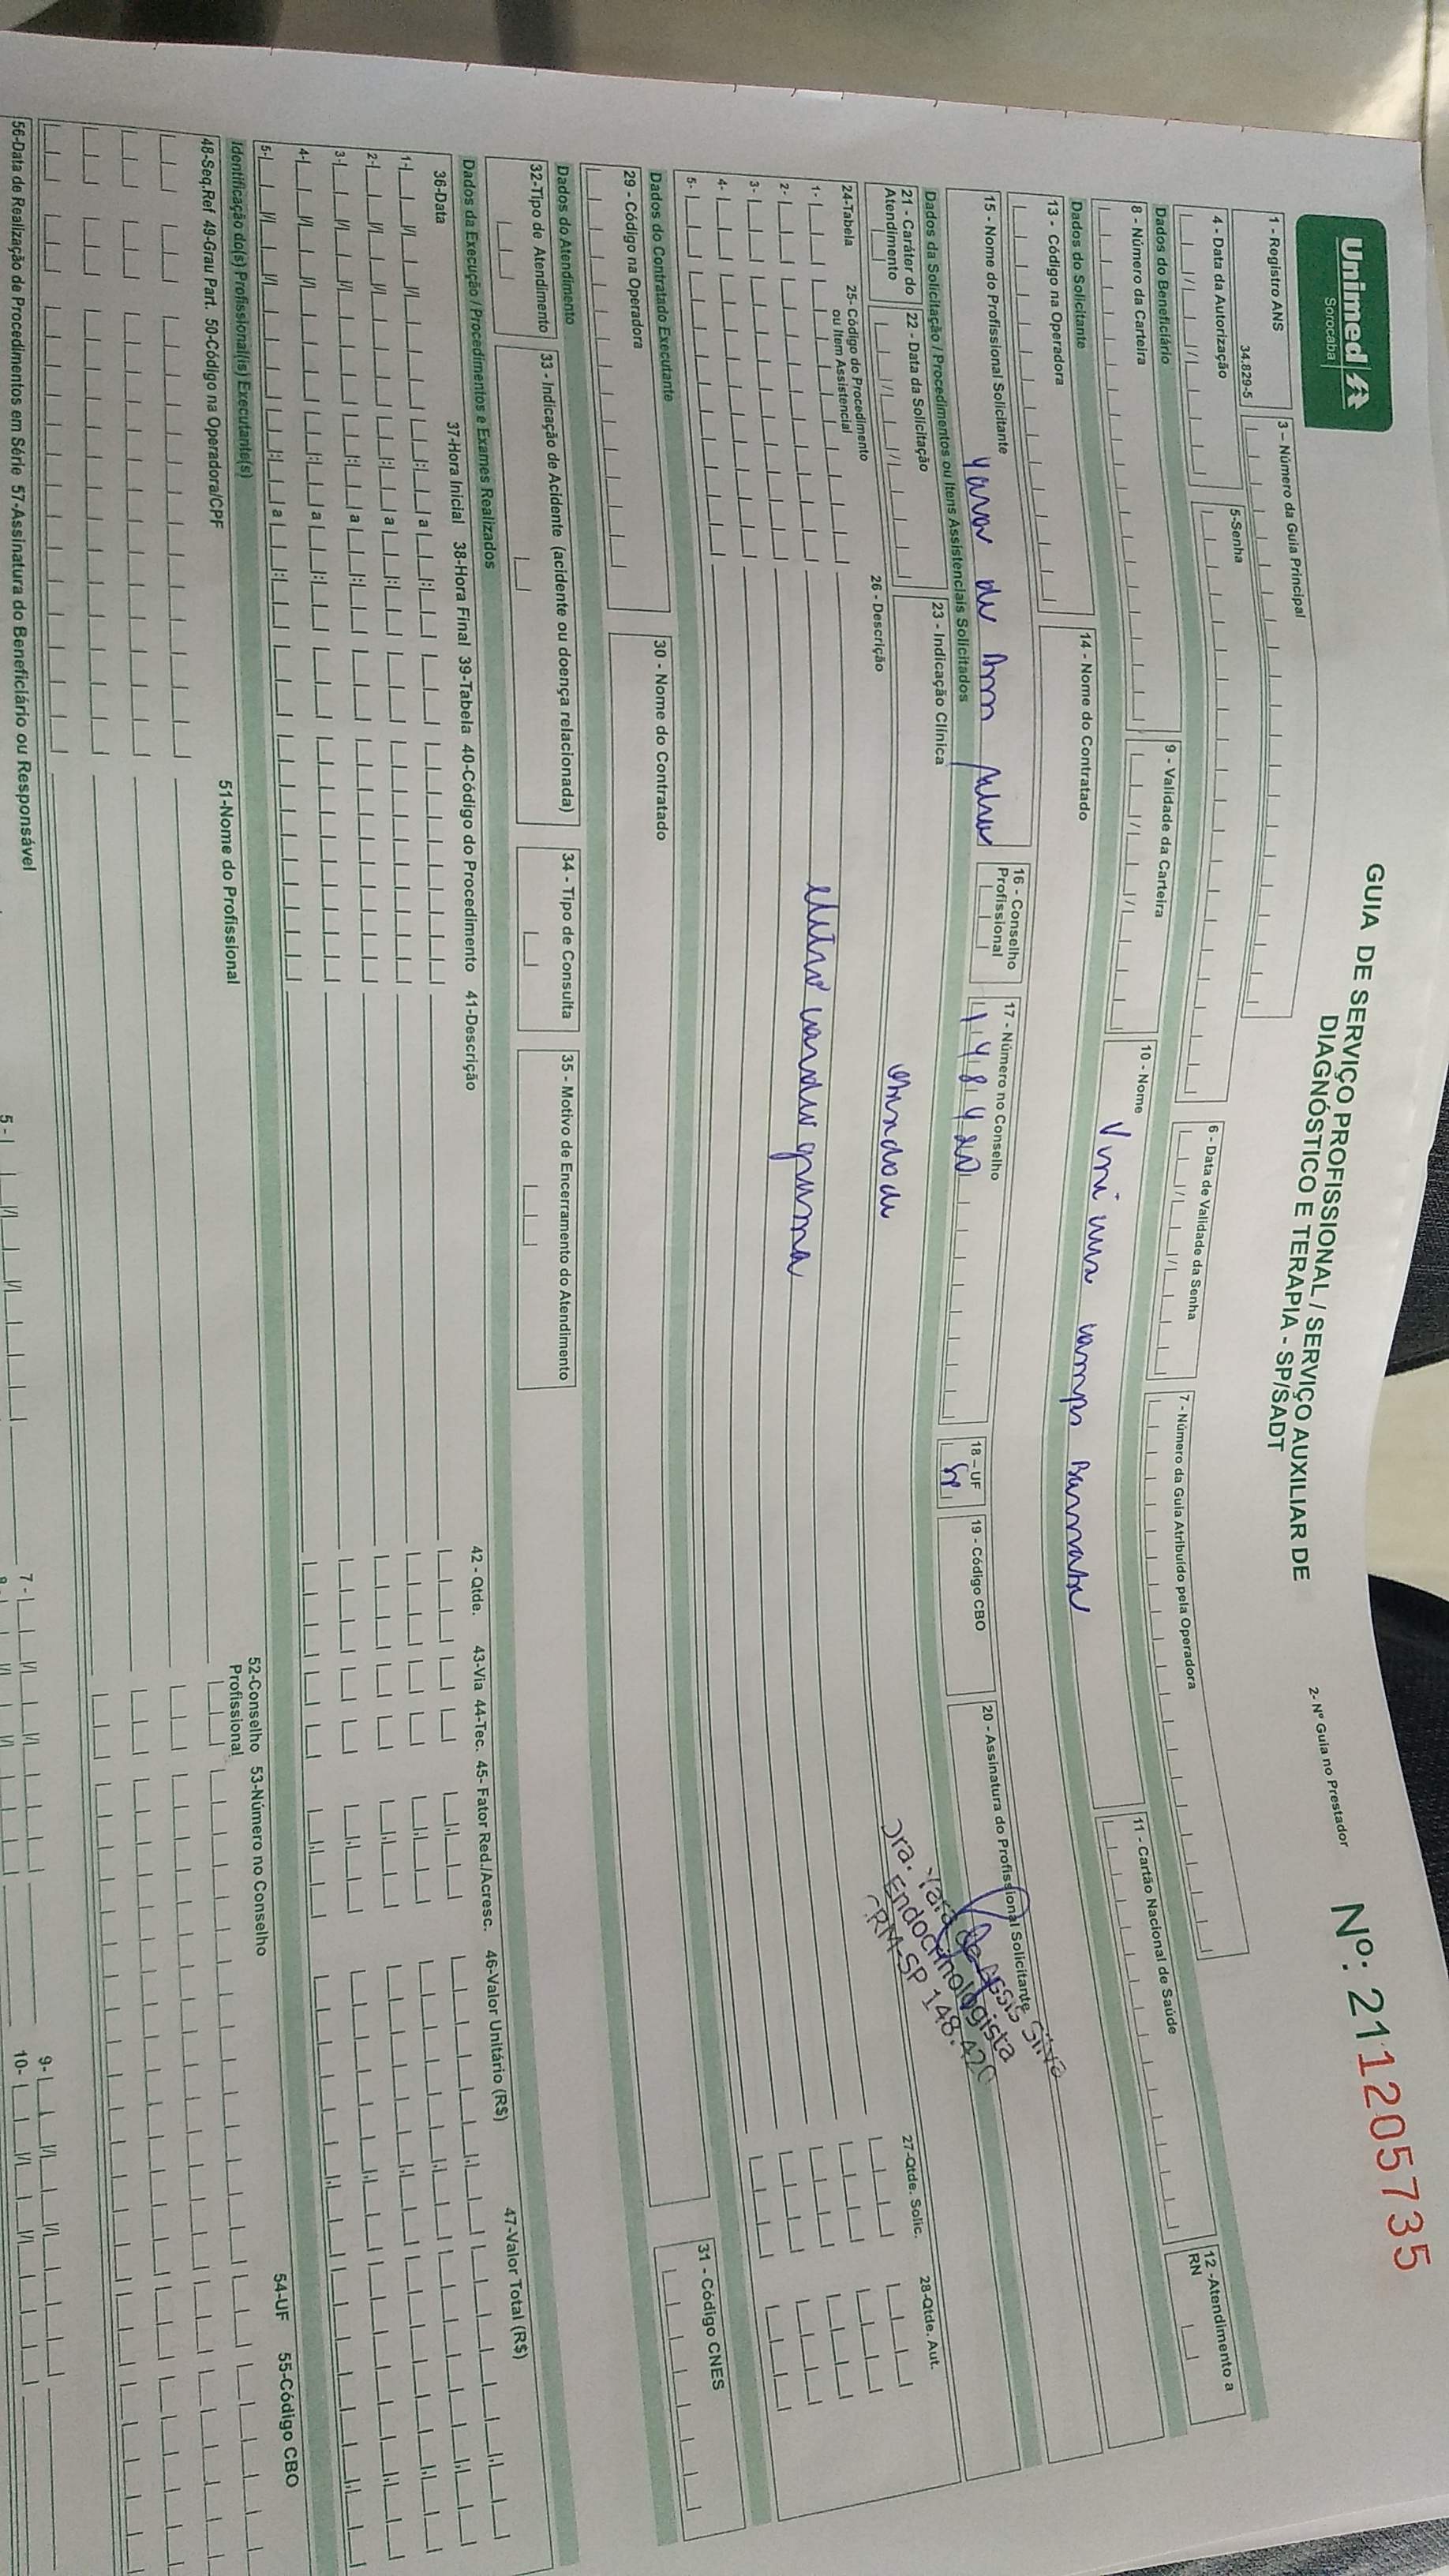 Unimed
Sorocaba
GUIA DE SERVIÇO PROFISSIONAL / SERVIÇO AUXILIAR DE
DIAGNÓSTICO E TERAPIA - SP/SADT
2- Nº Guia no Prestador
Nº: 211205735
1 - Registro ANS
34.829-5
3 – Número da Guia Principal
4 - Data da Autorização
5-Senha
6 - Data de Validade da Senha
7 - Número da Guia Atribuído pela Operadora
Dados do Beneficiário
8 - Número da Carteira
9 - Validade da Carteira
10 - Nome
campos
11 - Cartão Nacional de Saúde
12 -Atendimento a
RN
Dados do Solicitante
13 - Código na Operadora
14 - Nome do Contratado
15 - Nome do Profissional Solicitante
Yara de Assis Silva
16 - Conselho
Profissional
17 - Número no Conselho
148420
18 – UF
SP
19 - Código CBO
20 - Assinatura do Profissional Solicitante
Dra. Yara de Assis Silva
Endocrinologista
CRM-SP 148.420
Dados da Solicitação / Procedimentos ou Itens Assistenciais Solicitados
21 - Caráter do
Atendimento
22 - Data da Solicitação
23 - Indicação Clínica
24-Tabela
25- Código do Procedimento
ou Item Assistencial
26 - Descrição
27-Qtde. Solic.
28-Qtde. Aut.
1-
2-
eletrocardiograma
3-
4-
5-
Dados do Contratado Executante
29 - Código na Operadora
30 - Nome do Contratado
31 - Código CNES
Dados do Atendimento
32-Tipo de Atendimento
33 - Indicação de Acidente (acidente ou doença relacionada)
34 - Tipo de Consulta
35 - Motivo de Encerramento do Atendimento
Dados da Execução / Procedimentos e Exames Realizados
36-Data
37-Hora Inicial
38-Hora Final
39-Tabela
40-Código do Procedimento
41-Descrição
42 - Qtde.
43-Via
44-Tec.
45- Fator Red./Acresc.
46-Valor Unitário (R$)
47-Valor Total (R$)
1- a
2- a
3- a
4- a
5- a
Identificação do(s) Profissional(is) Executante(s)
48-Seq.Ref
49-Grau Part.
50-Código na Operadora/CPF
51-Nome do Profissional
52-Conselho
Profissional
53-Número no Conselho
54-UF
55-Código CBO
56-Data de Realização de Procedimentos em Série
57-Assinatura do Beneficiário ou Responsável
5 -
7 -
9-
10-